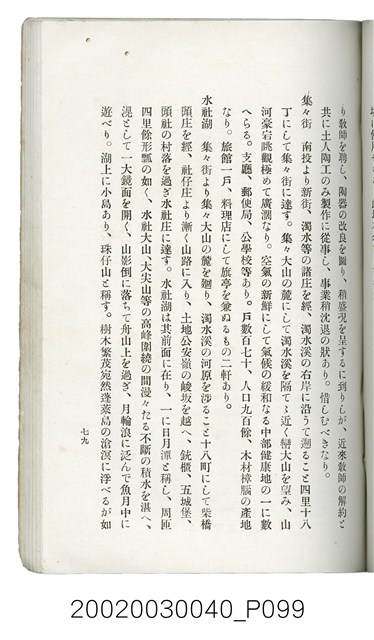 り敎師を聘し、陶器の改良を圖り、稍盛況を呈するに到りしが、近來敎師の解約と
共に土人陶工のみ製作に從事し、事業稍沈退の狀あり。惜しむべきなり。
集々街　南投より新街、濁水等の諸庄を經、濁水溪の右岸に沿うて溯ること四里十八
丁にして集々街に達す。集々大山の麓にして濁水溪を隔てゝ近く巒大山を望み、山
河豪宕眺觀極めて廣濶なり。空氣の新鮮にして氣候の緩和なる中部健康地の一に數
へらる。支廳、郵便局、公學校等あり。戶數百七十、人口九百餘、木材樟腦の產地
なり。旅館一戶、料理店にして旗亭を兼ぬるもの二軒あり。
水社湖　集々街より集々大山の麓を廻り、濁水溪の河原を涉ること十八町にして柴橋
頭庄を經、社仔庄より漸く山路に入り、土地公安嶺の峻坂を越へ、銃櫃、五城堡、
頭社の村落を過ぎ水社庄に達す。水社湖は其前面に在り、一に日月潭と稱し、周匝
四里餘形瓢の如く、水社大山、大尖山等の高峰圍繞の間漫々たる不斷の積水を湛へ、
滉として一大鏡面を開く、山影倒に落ちて舟山上を過ぎ、月輪浪に泛んで魚月中に
遊べり。湖上に小島あり、珠仔山と稱す。樹木繁茂宛然蓬萊島の滄溟に浮べるが如
七九
20020030040_P099